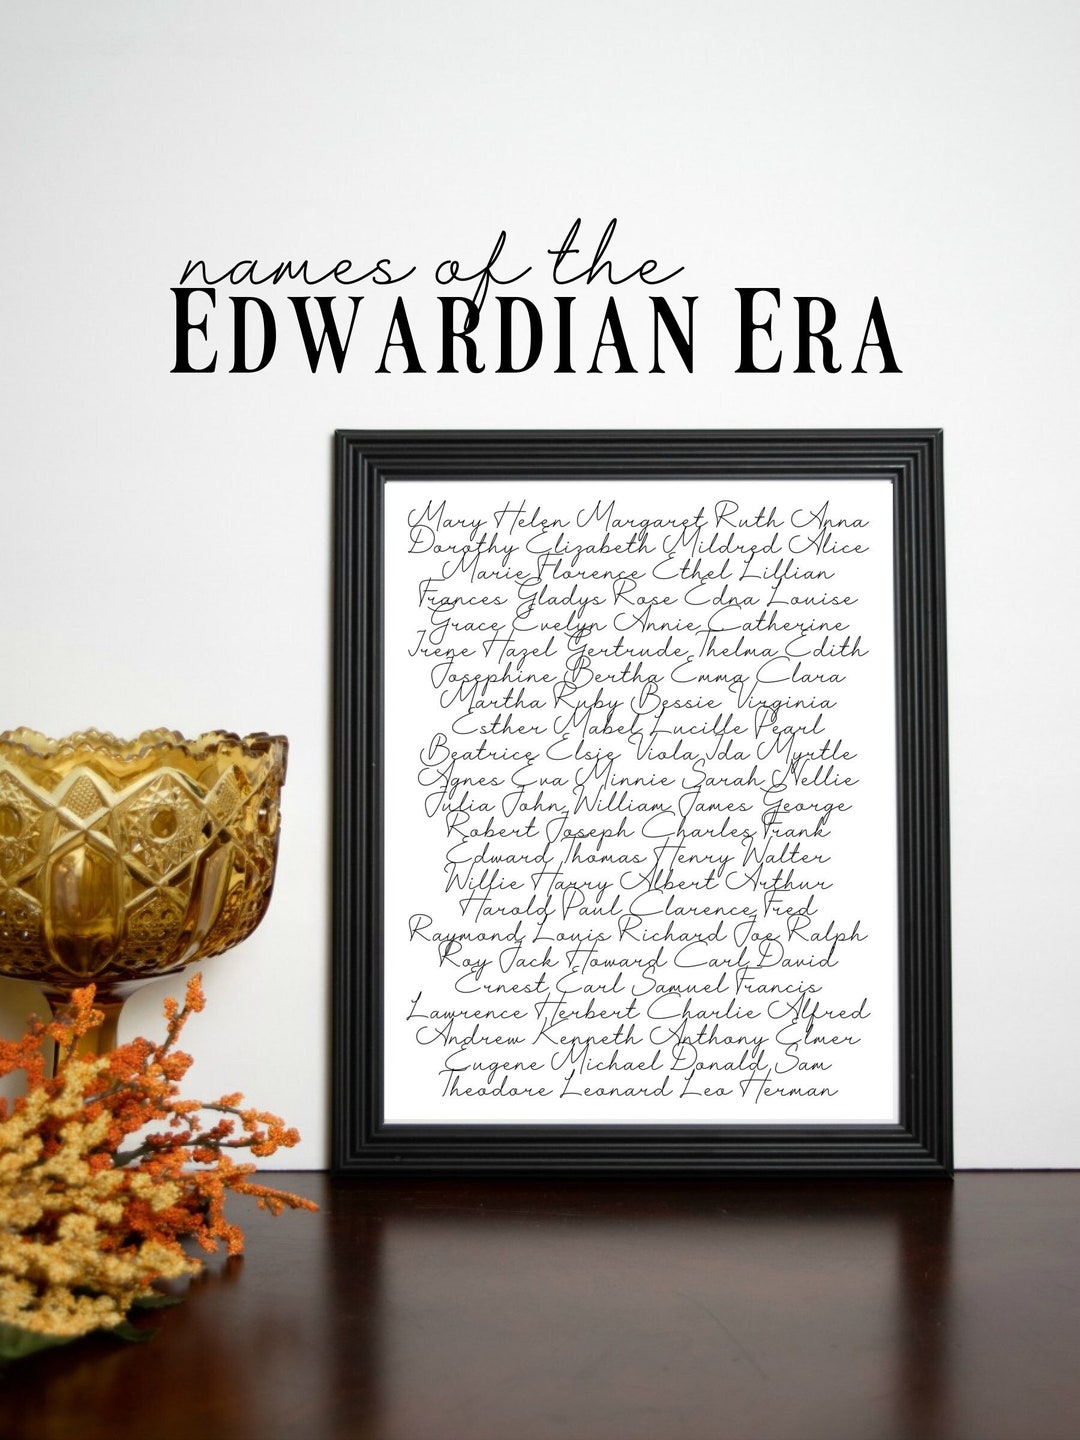 names of the
EDWARDIAN ERA
Mary Helen Margaret Ruth Anna
Dorothy Elizabeth Mildred Alice
Marie Florence Ethel Lillian
Frances Gladys Rose Edna Louise
Grace Evelyn Annie Catherine
Irene Hazel Gertrude Thelma Edith
Josephine Bertha Emma Clara
Martha Ruby Bessie Virginia
Esther Mabel Lucille Pearl
Beatrice Elsie Viola Ida Myrtle
Agnes Eva Minnie Sarah Nellie
Julia John William James George
Robert Joseph Charles Frank
Edward Thomas Henry Walter
Willie Harry Albert Arthur
Harold Paul Clarence Fred
Raymond Louis Richard Joe Ralph
Roy Jack Howard Carl David
Ernest Earl Samuel Francis
Lawrence Herbert Charlie Alfred
Andrew Kenneth Anthony Elmer
Eugene Michael Donald Sam
Theodore Leonard Leo Herman